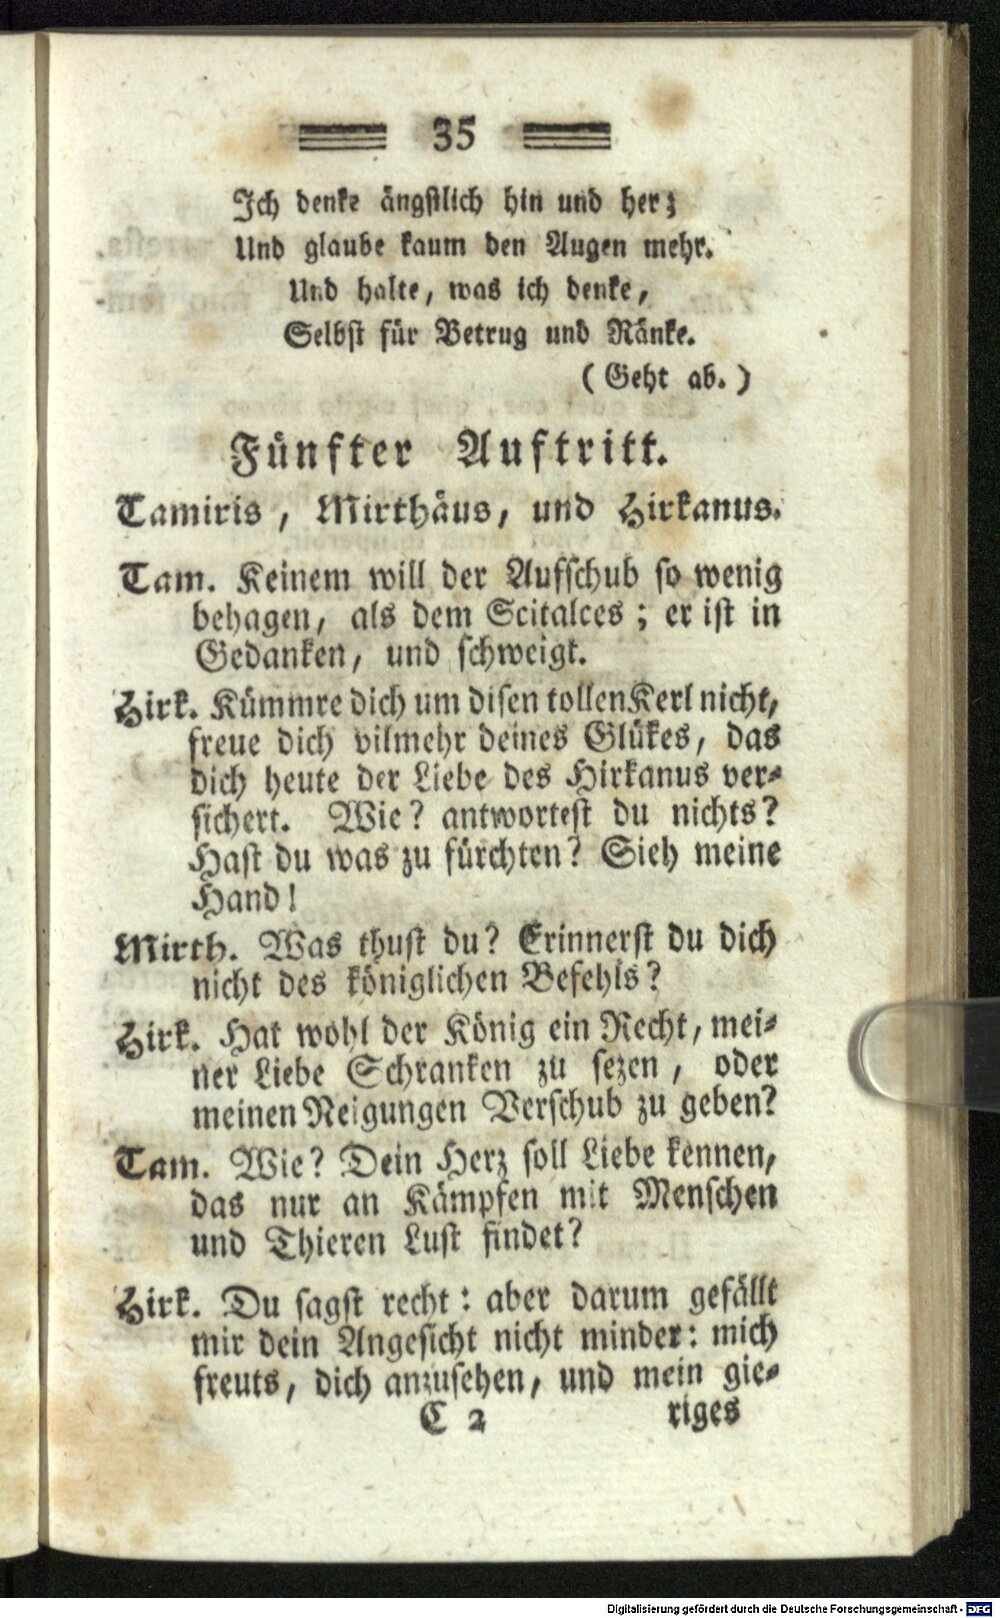 35
Ich denke ängstlich hin und her;
Und glaube kaum den Augen mehr.
Und halte, was ich denke,
Selbst für Betrug und Ränke.
(Geht ab.)
Fünfter Auftritt.
Tamiris, Mirthäus, und Hirkanus.
Tam. Keinem will der Aufschub so wenig
behagen, als dem Scitalces; er ist in
Gedanken, und schweigt.
Hirk. Kümmre dich um disen tollen Kerl nicht,
freue dich vilmehr deines Glükes, das
dich heute der Liebe des Hirkanus ver-
sichert. Wie? antwortest du nichts?
Hast du was zu fürchten? Sieh meine
Hand!
Mirth. Was thust du? Erinnerst du dich
nicht des königlichen Befehls?
Hirk. Hat wohl der König ein Recht, mei-
ner Liebe Schranken zu sezen, oder
meinen Neigungen Verschub zu geben?
Tam. Wie? Dein Herz soll Liebe kennen,
das nur an Kämpfen mit Menschen
und Thieren Lust findet?
Hirk. Du sagst recht: aber darum gefällt
mir dein Angesicht nicht minder: mich
freuts, dich anzusehen, und mein gie-
C 2 riges
Digitalisierung gefördert durch die Deutsche Forschungsgemeinschaft - DFG